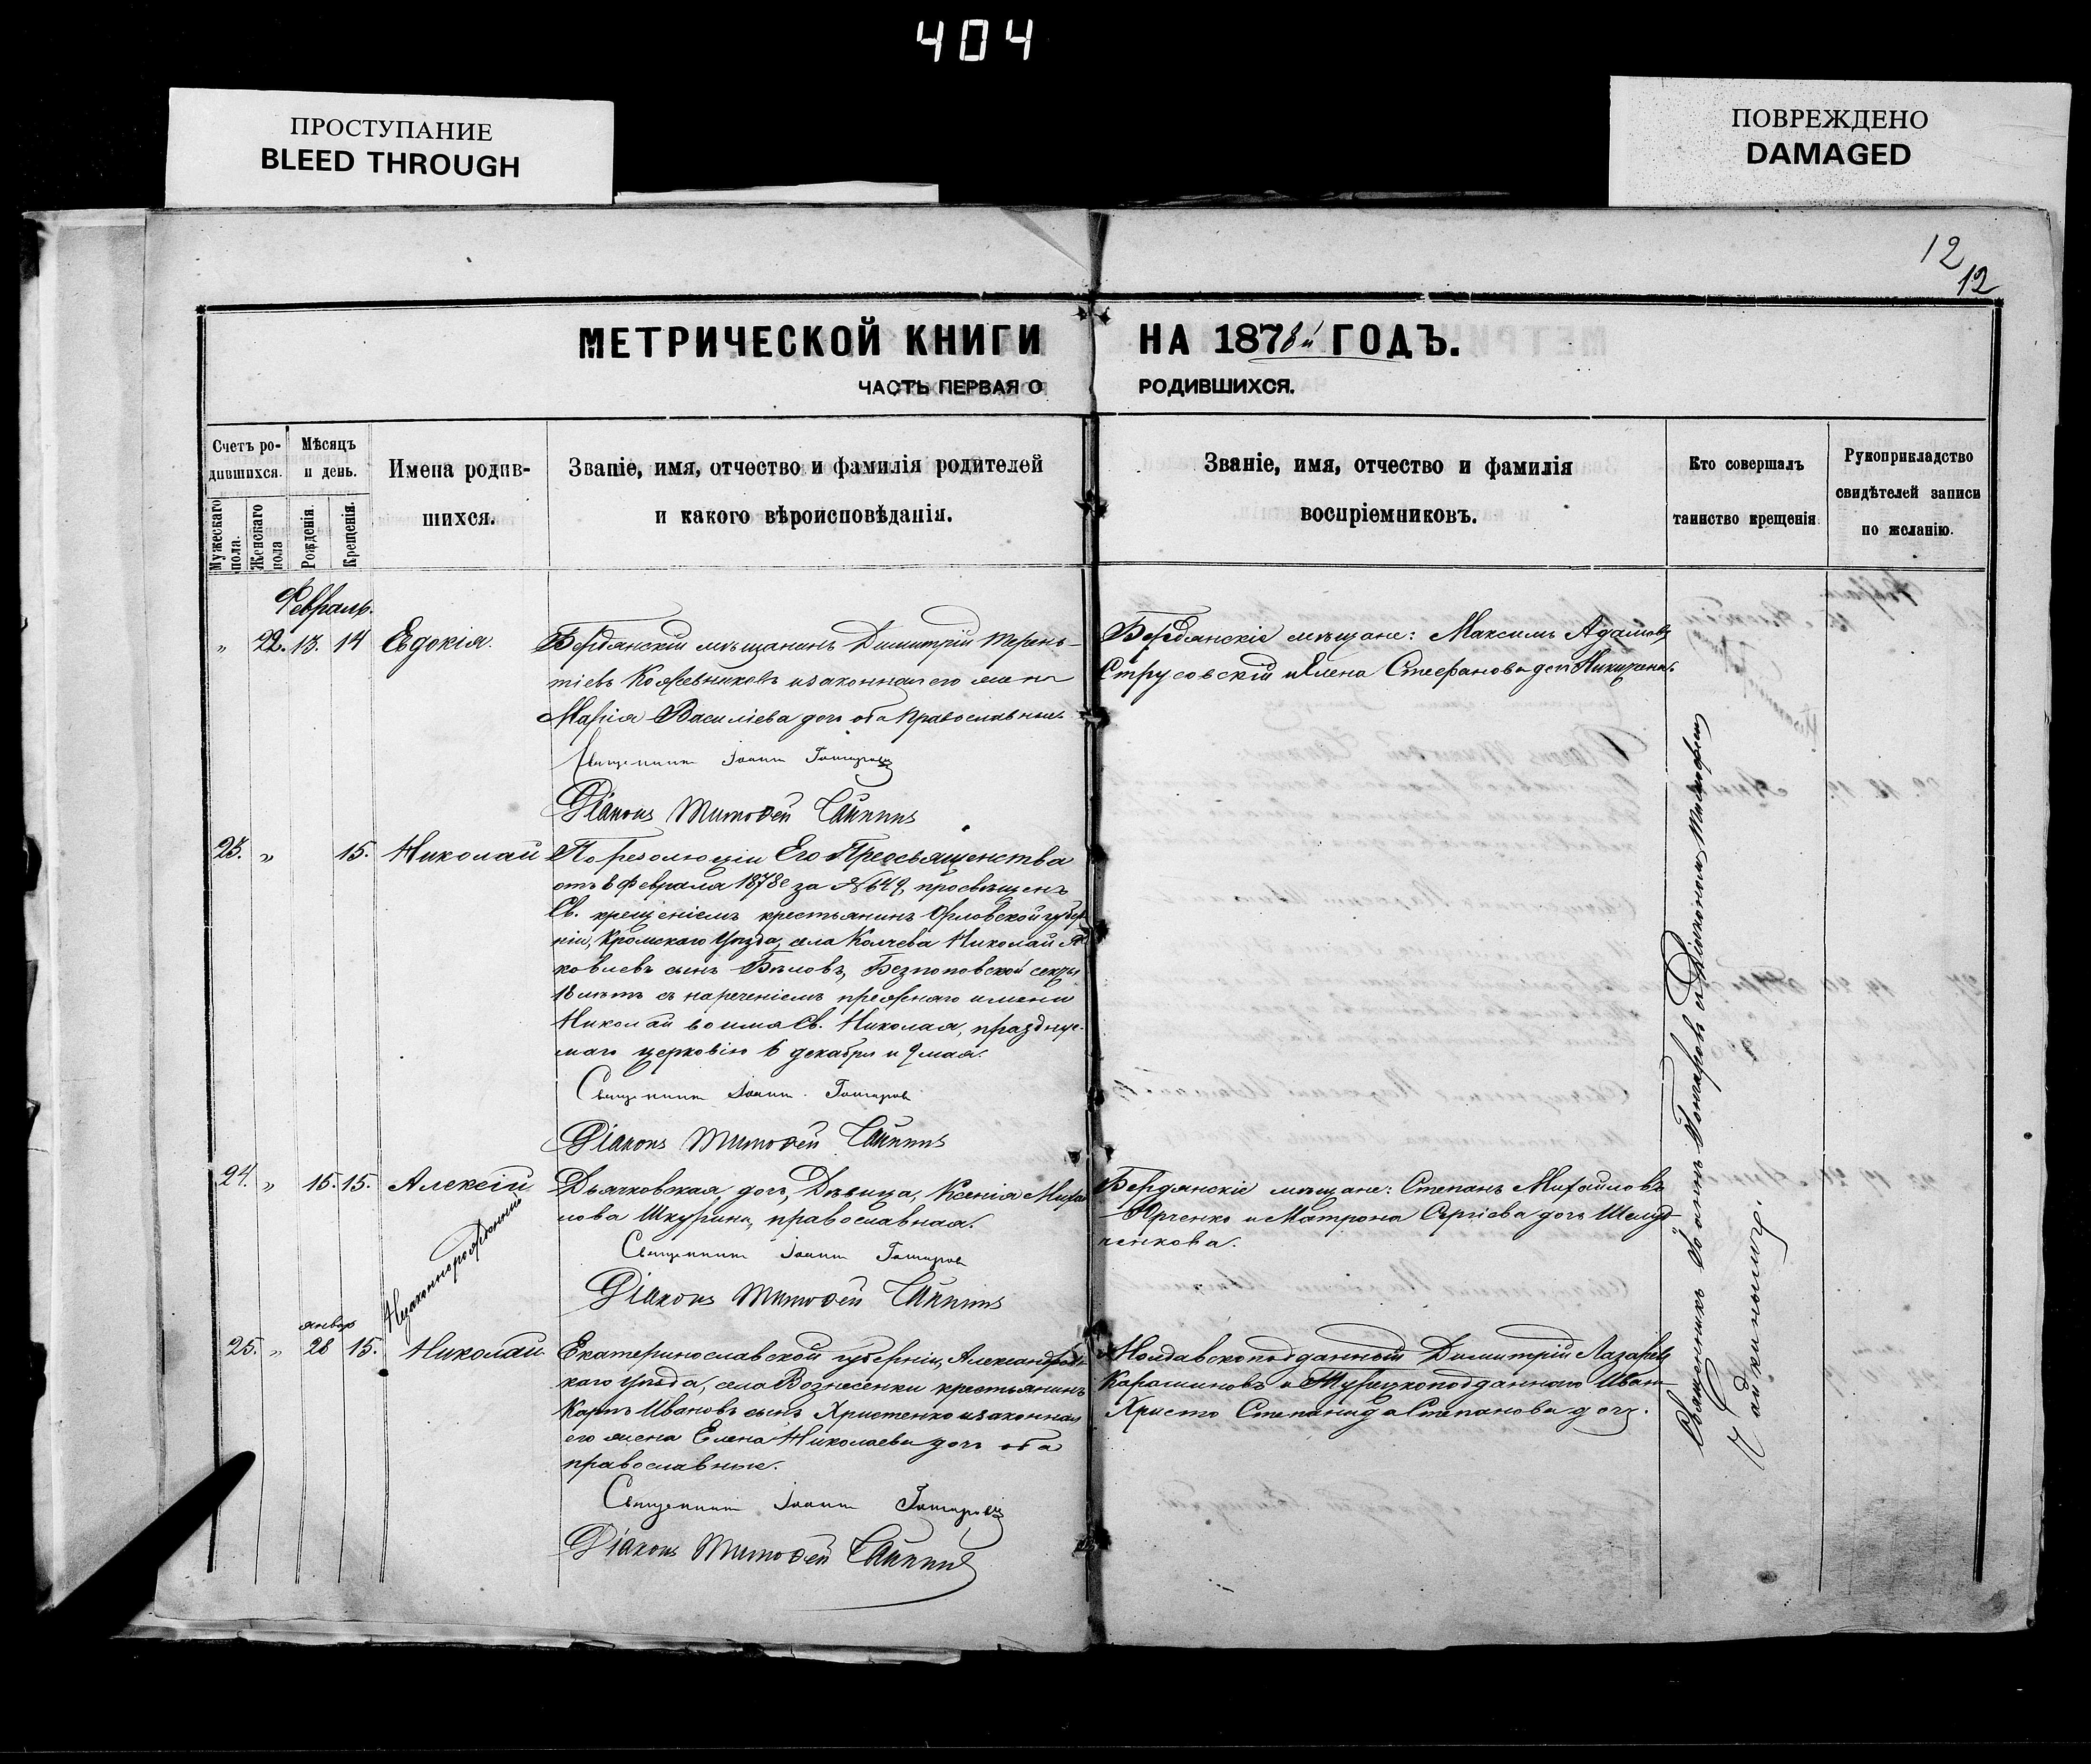 404
ПРОСТУПАНИЕ
BLEED THROUGH
ПОВРЕЖДЕНО
DAMAGED
12
12
МЕТРИЧЕСКОЙ КНИГИ НА 1878й ГОДЪ.
ЧАСТЬ ПЕРВАЯ О РОДИВШИХСЯ.
Счетъ ро-
дившихся.
Мужескаго
пола.
Женскаго
пола
Мѣсяцъ
и день.
Рожденія.
Крещенія.
Имена родив-
шихся.
Званіе, имя, отчество и фамилія родителей
и какого вѣроисповѣданія.
Званіе, имя, отчество и фамилія
воспріемниковъ.
Кто совершалъ
таинство крещенія
Рукоприкладство
свидѣтелей записи
по желанію.
Февраль.
„ 22. 13. 14 Евдокія.
Бердянскій мѣщанинъ Димитрій Терень-
тіевъ Кожевниковъ и законная его жена
Марія Василіева дочь оба православные.
Священникъ Іоаннъ Гончаровъ
Діаконъ Тимофей Чайкинъ
Бердянскіе мѣщане: Максимъ Адамовъ
Струсовскій и Елена Стефанова дочь
23. „ 15. Николай
По резолюціи Его Преосвященства
отъ 8 Февраля 1878 г за № 649, просвѣщенъ
Св. крещеніемъ крестьянинъ Орловской губер
ніи, Кромскаго Уѣзда, села Колчева Николай Я
ковлевъ сынъ Бѣловъ, Безпоповской секты
18 лѣтъ съ нареченіемъ прежняго имени
Николай во имя Св. Николая, праздную-
маго церковію 6 декабря и 9 мая.
Священникъ Іоаннъ Гончаровъ
Діаконъ Тимофей Чайкинъ
24. „ 15. 15. Алексій
Незаконнорожденный
Дьячковская дочь, Дѣвица, Ксенія Михай
лова Шкурина, православная.
Священникъ Іоаннъ Гончаровъ
Діаконъ Тимофей Чайкинъ
Бердянскіе мѣщане: Степанъ Михайловъ
Юрченко и Матрона Сергіева дочь Шелуд
ченкова.
январ
25. „ 28 15. Николай
Екатеринославской губерніи, Александровс
каго Уѣзда, села Вознесенки крестьянинъ
Карпъ Ивановъ сынъ Христенко и законная
его жена Елена Николаева дочь оба
православные.
Священникъ Іоаннъ Гончаровъ
Діаконъ Тимофей Чайкинъ
Молдавскоподданный Димитрій Лазаревъ
Карашиновъ и Турецкоподданнаго Иван
Христо Степанида Степанова дочь.
Священникъ Іоаннъ Гончаровъ съ Діакономъ Тимофеемъ
Чайкинымъ.